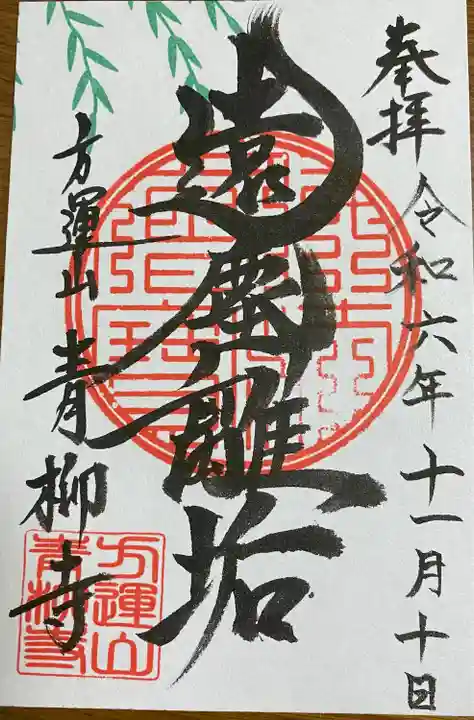 奉拝
令和六年十一月十日
遠塵離垢
方運山
青柳寺
方運山
青柳寺